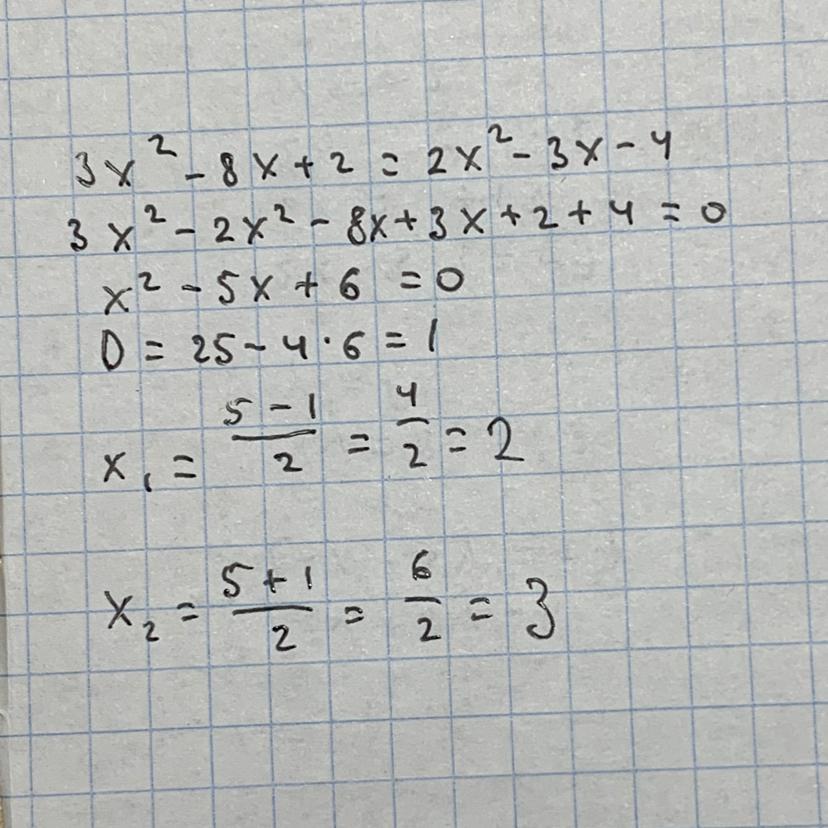 3x² - 8x + 2 = 2x² - 3x - 4
3x² - 2x² - 8x + 3x + 2 + 4 = 0
x² - 5x + 6 = 0
D = 25 - 4 · 6 = 1
x₁ = (5 - 1)/2 = 4/2 = 2
x₂ = (5 + 1)/2 = 6/2 = 3